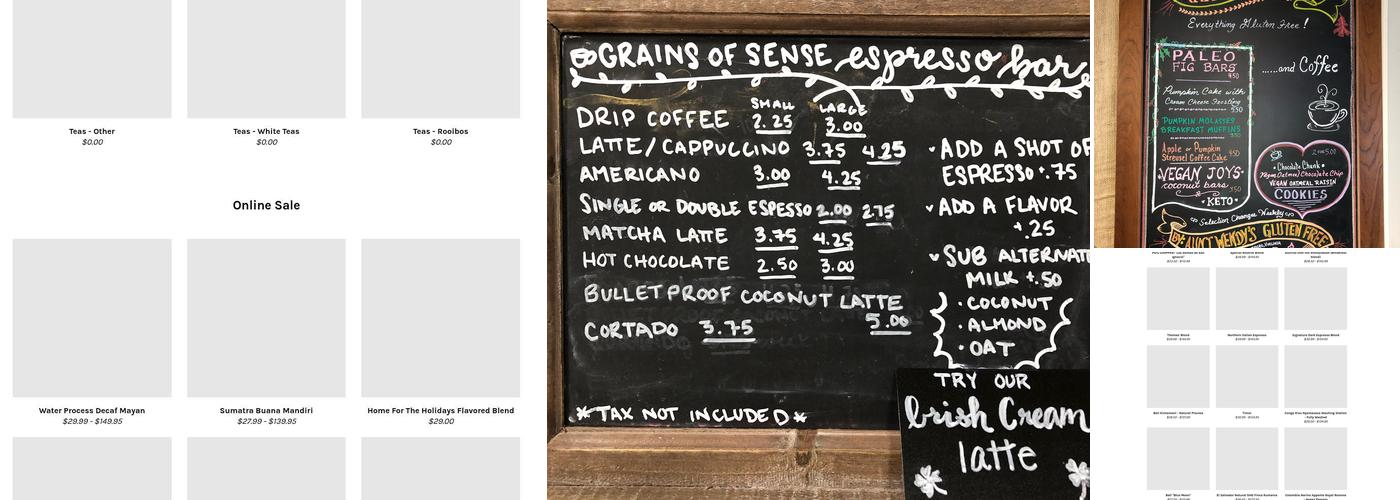 Teas - Other
$0.00
Teas - White Teas
$0.00
Teas - Rooibos
$0.00
Online Sale
Water Process Decaf Mayan
$29.99 - $149.95
Sumatra Buana Mandiri
$27.99 - $139.95
Home For The Holidays Flavored Blend
$29.00
GRAINS OF SENSE espresso bar
SMALL LARGE
DRIP COFFEE 2.25 3.00
LATTE/CAPPUCCINO 3.75 4.25
AMERICANO 3.00 4.25
SINGLE OR DOUBLE ESPESSO 2.00 2.75
MATCHA LATTE 3.75 4.25
HOT CHOCOLATE 2.50 3.00
BULLETPROOF COCONUT LATTE
5.00
CORTADO 3.75
*TAX NOT INCLUDED*
ADD A SHOT OF
ESPRESSO +.75
ADD A FLAVOR
+.25
SUB ALTERNAT
MILK +.50
· COCONUT
· ALMOND
· OAT
TRY OUR
Irish Cream
latte
Everything Gluten Free!
PALEO
FIG BARS
......and Coffee
Pumpkin Cake with
Cream Cheese Frosting
PUMPKIN MOLASSES
BREAKFAST MUFFINS
Apple or Pumpkin
Streusel Coffee Cake
VEGAN JOYS
coconut bars
· KETO ·
Chocolate Chunk
Vegan Oatmeal Chocolate Chip
VEGAN OATMEAL RAISIN
COOKIES
Selection Changes Weekly
BY: AUNT WENDY'S GLUTEN FREE
Northern Italian Espresso
Signature Dark Espresso Blend
Timor